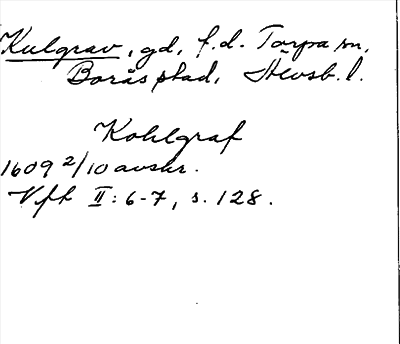 Kulgrav, gd, f.d. Torpa sn,
Borås stad, Älvsb. l.
Kohlgraf
1609 2/10 avskr.
Vfh II: 6-7, s. 128.